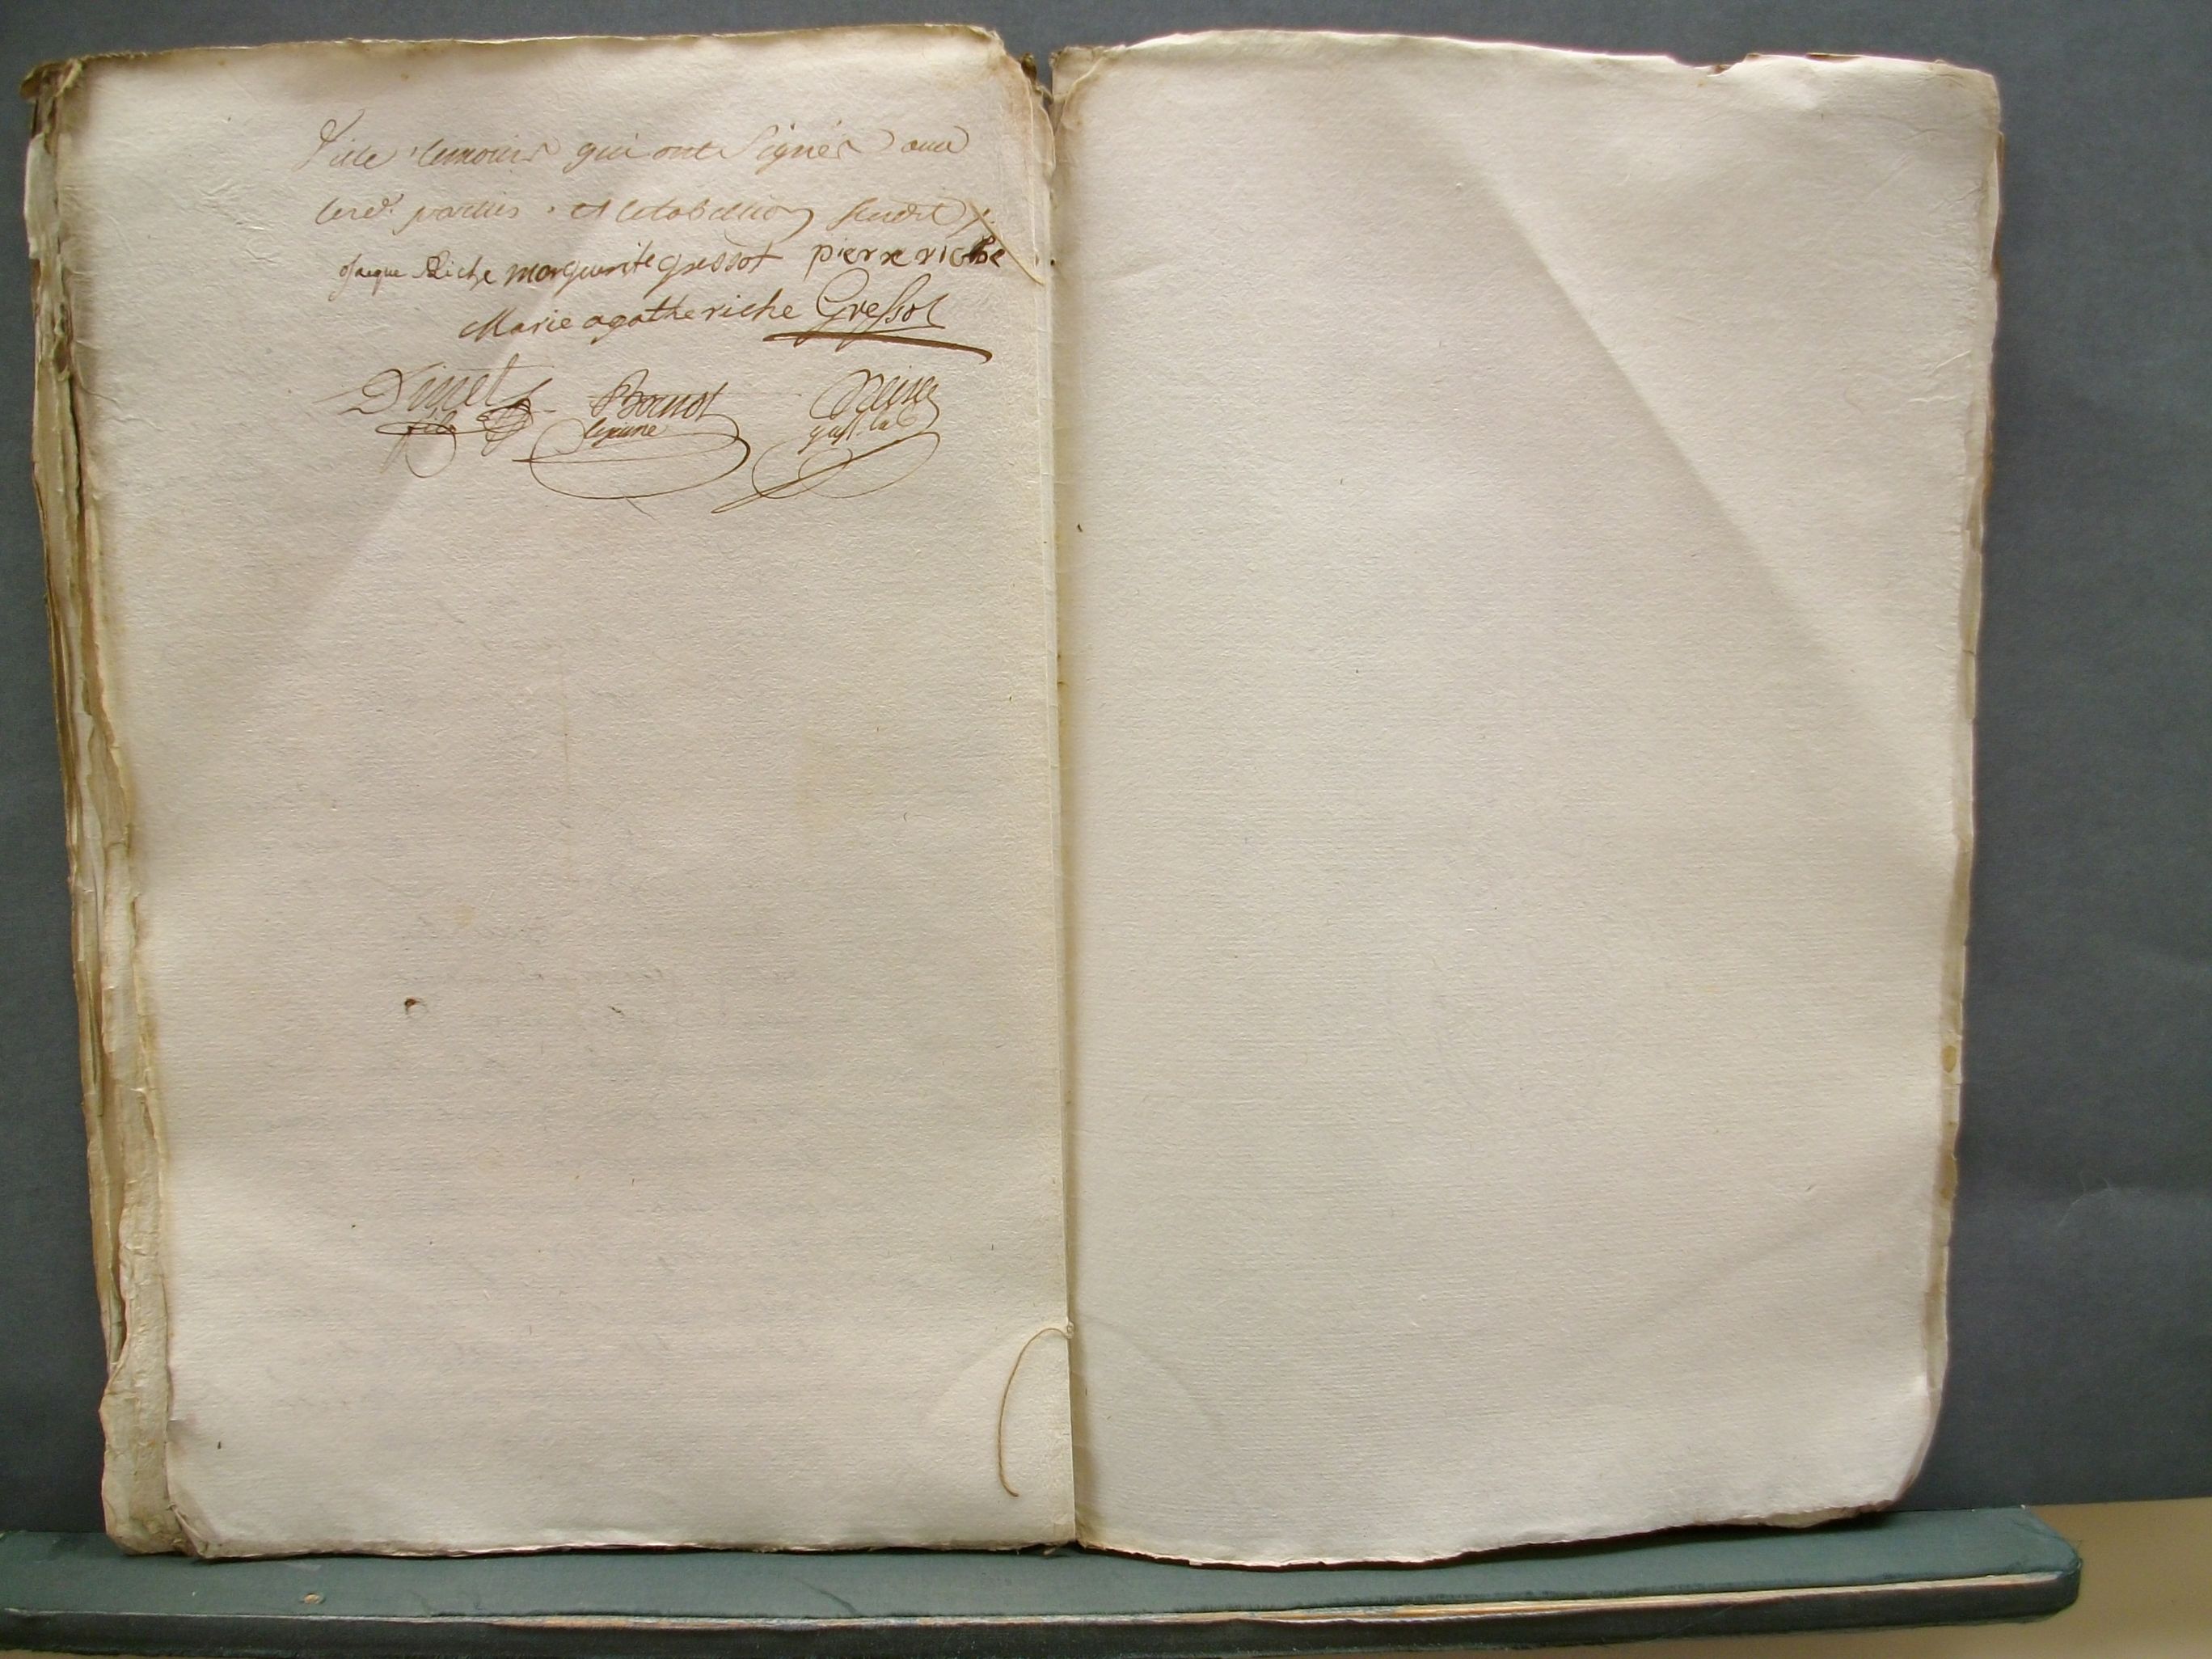 Ville temoins qui ont signés avec
lesd. parties et le tabellion susdit ./.
Jaque Riche marguerite gressot pierre riche
Marie agathe riche Gressot
Dinet Bornot
fils lejeune